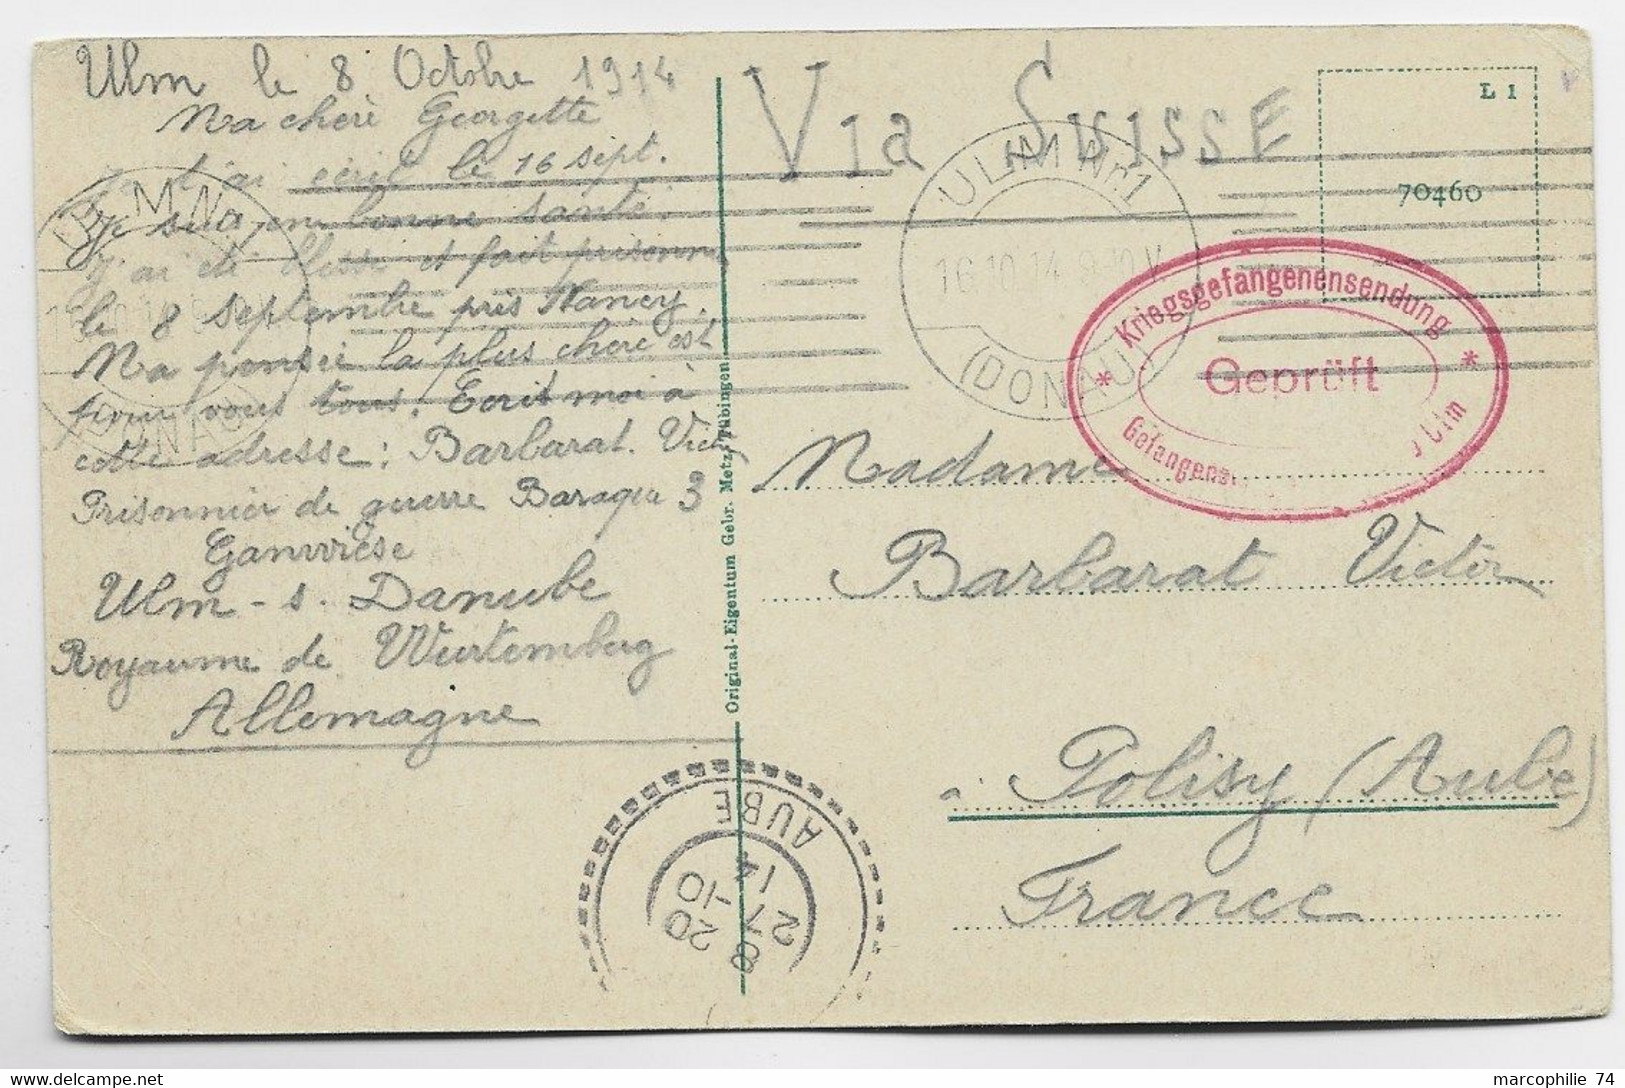 Ulm le 8 Octobre 1914
Ma chère Georgette
Je t'ai écrit le 16 sept.
Je suis en bonne santé.
J'ai été blessé et fait prisonn
le 8 Septembre près Nancy.
Ma pensée la plus chère est
pour vous tous. Ecrit moi à
cette adresse : Barbarat. Victor
Prisonnier de guerre Baraque 3
Ulm - s. Danube
Royaume de Wurtemberg
Allemagne
Original-Eigentum Gebr. Metz, Tübingen.
Via Suisse
L 1
70460
ULM Nr1
16.10.14
(DONAU)
Kriegsgefangenensendung
Geprüft
Ulm
Madame
Barbarat Victor
à Polisy (Aube)
France
AUBE
8 20
27 -10
14
marcophilie 74